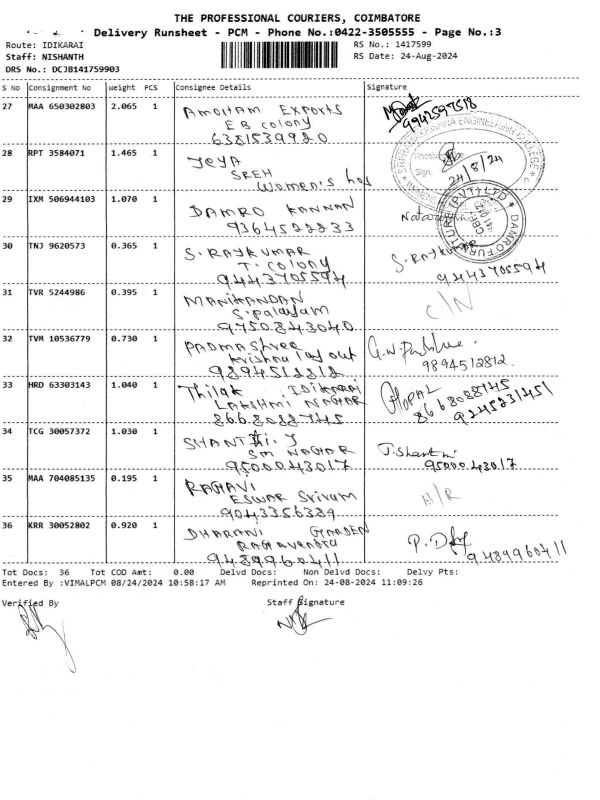 THE PROFESSIONAL COURIERS, COIMBATORE
Delivery Runsheet - PCM - Phone No.:0422-3505555 - Page No.:3
Route: IDIKARAI RS No.: 1417599
Staff: NISHANTH RS Date: 24-Aug-2024
DRS No.: DCJB141759903
S No Consignment No Weight PCS Consignee Details Signature
27 MAA 650302803 2.065 1 Amoham Exports
EB colony
6381539920
9942597518
28 RPT 3584071 1.465 1 Jeya
SREH
Women's hos
24/8/24
29 IXM 506944103 1.070 1 DAMRO KANNAN
9364522833
30 TNJ 9620573 0.365 1 S. RAJKUMAR S. RAJKUMAR
T. COLONY
9443705594 9443705594
31 TVR 5244986 0.395 1 MANIKANDAN C/N
S. Palayam
9750843040
32 TVM 10536779 0.730 1 PADMA Shree
Krishna lay out
9894512812 9894512812
33 HRD 63303143 1.040 1 Thilak IDIKARAI GOPAL
LAKSHMI NAGAR 8668088745
8668088745 9245231451
34 TCG 30057372 1.030 1 SHANTHI. J J. Shanthi
SM NAGAR
9500043017 9500043017
35 MAA 704085135 0.195 1 RAGAVI H/R
ESWAR Srivam
9043356389
36 KRR 30052802 0.920 1 DHARANI GARDEN
RAGHAVENDRA
9489960411 9489960411
Tot Docs: 36 Tot COD Amt: 0.00 Delvd Docs: Non Delvd Docs: Delvy Pts:
Entered By :VIMALPCM 08/24/2024 10:58:17 AM Reprinted On: 24-08-2024 11:09:26
Verified By Staff Signature